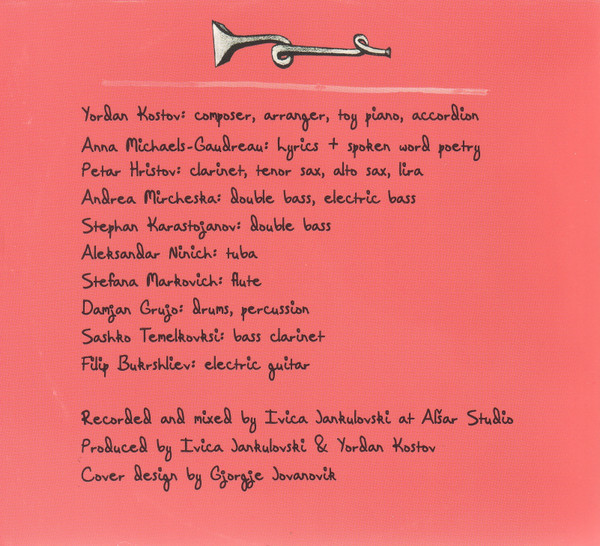 Yordan Kostov: composer, arranger, toy piano, accordion
Anna Michaels-Gaudreau: Lyrics + spoken word poetry
Petar Hristov: clarinet, tenor sax, alto sax, lira
Andrea Mircheska: double bass, electric bass
Stephan Karastojanov: double bass
Aleksandar Ninich: tuba
Stefana Markovich: flute
Damjan Grujo: drums, percussion
Sashko Temelkovksi: bass clarinet
Filip Bukrshliev: electric guitar
Recorded and mixed by Ivica Jankulovski at Alšar Studio
Produced by Ivica Jankulovski & Yordan Kostov
Cover design by Gjorgje Jovanovik